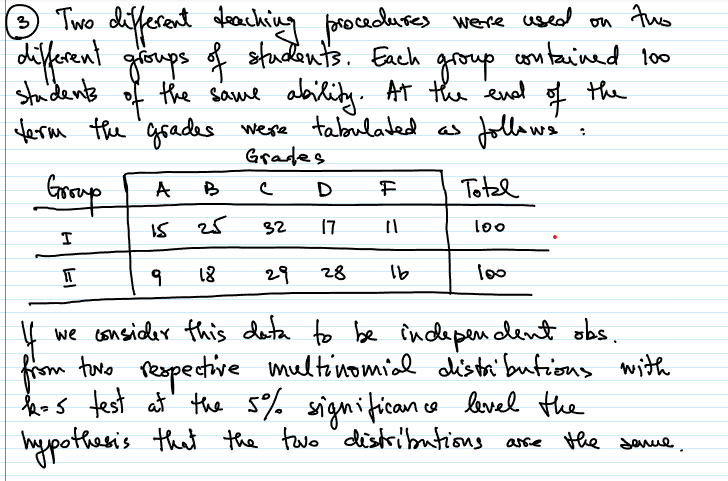 ③ Two different teaching procedures were used on two
different groups of students. Each group contained 100
students of the same ability. At the end of the
term the grades were tabulated as follows :
Grades
Group A B C D F Total
I 15 25 32 17 11 100
II 9 18 29 28 16 100
If we consider this data to be independent obs.
from two respective multinomial distributions with
k=5 test at the 5% significance level the
hypothesis that the two distributions are the same.